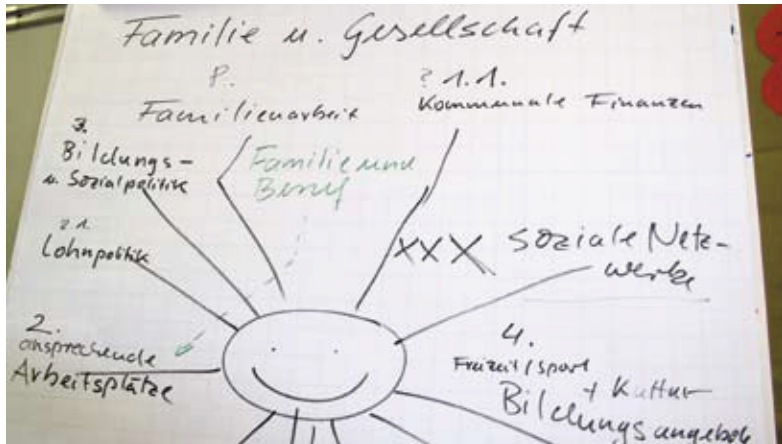 Familie u. Gesellschaft
P.
Familienarbeit
? 1.1.
Kommunale Finanzen
3.
Bildungs-
u. Sozialpolitik
Familie und
Beruf
? 1.
Lohnpolitik
XXX
Soziale Netz-
werke
2.
ansprechende
Arbeitsplätze
4.
Freizeit/Sport
+ Kultur
Bildungsangebot